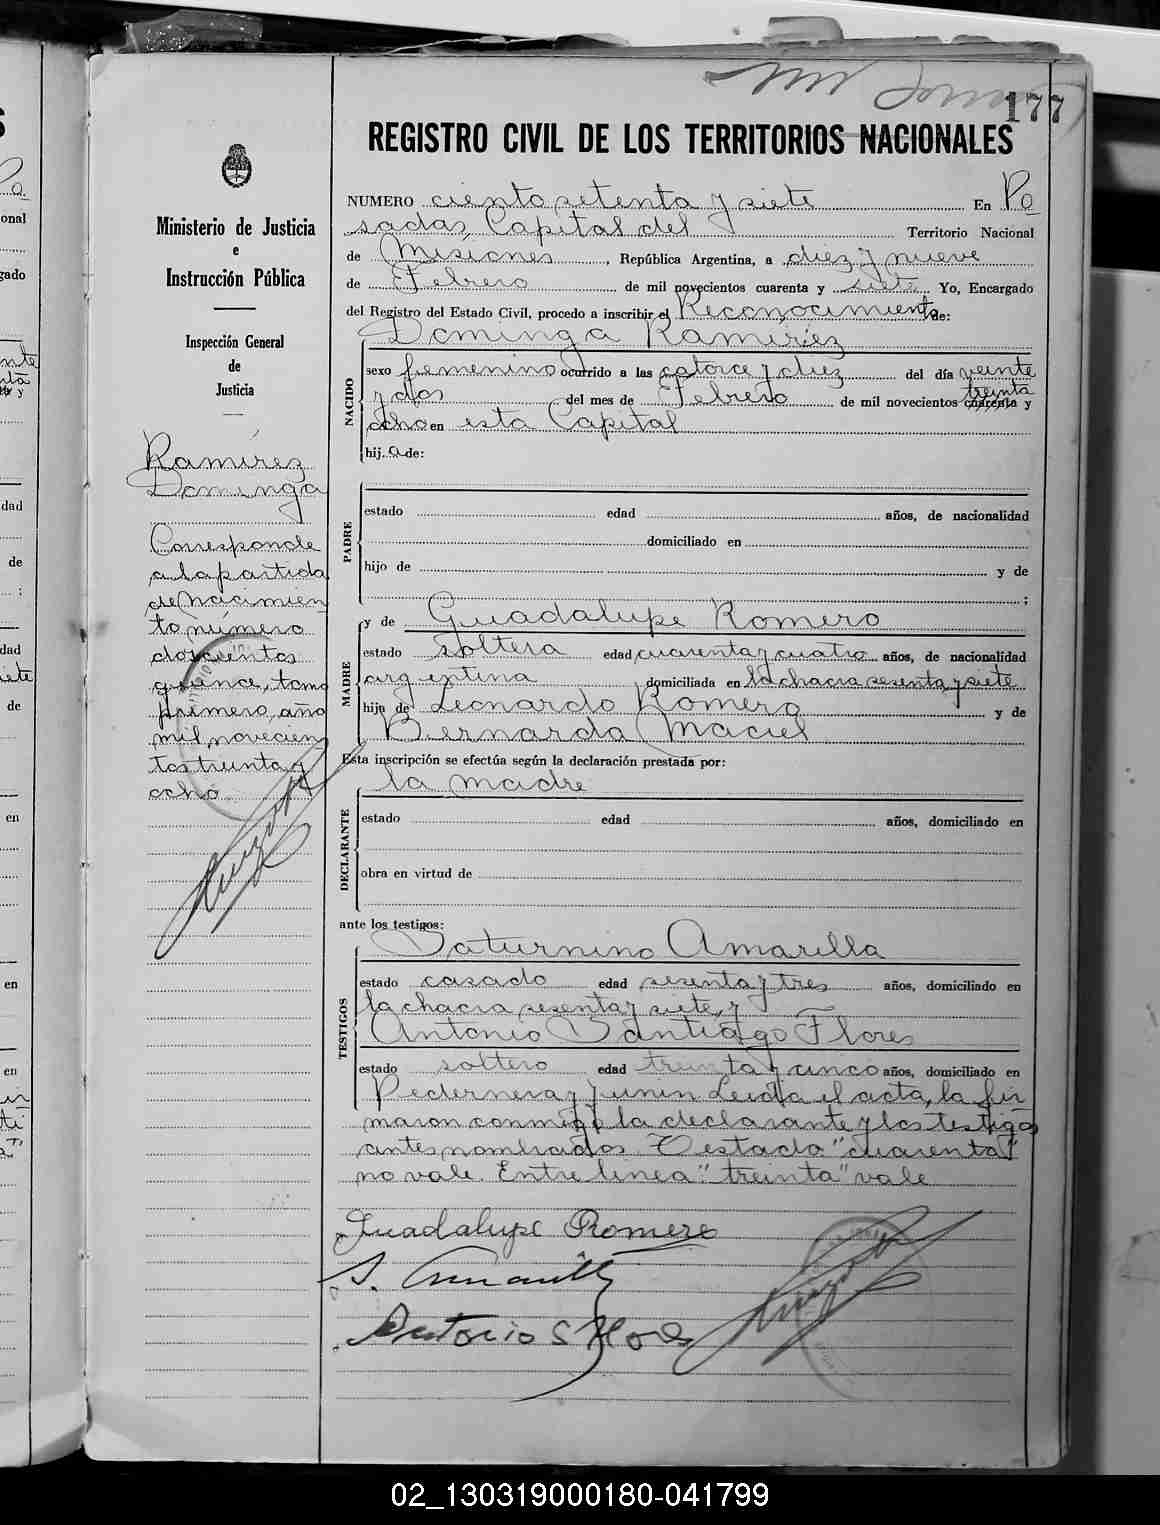 177
REGISTRO CIVIL DE LOS TERRITORIOS NACIONALES
Ministerio de Justicia
e
Instrucción Pública
Inspección General
de
Justicia
Ramirez
Dominga
Corresponde
a la partida
de nacimien
to número
doscientos
quince, tomo
primero, año
mil novecien
tos treinta y
ocho
NUMERO ciento setenta y siete En Po
sadas, Capital del Territorio Nacional
de Misiones, República Argentina, a diez y nueve
de Febrero de mil novecientos cuarenta y siete Yo, Encargado
del Registro del Estado Civil, procedo a inscribir el Reconocimiento de:
NACIDO
Dominga Ramirez
sexo femenino ocurrido a las catorce y diez del día veinte
y dos del mes de Febrero de mil novecientos cuarenta treinta y
ocho en esta Capital
hij.a de:
PADRE
estado edad años, de nacionalidad
domiciliado en
hijo de y de
;
MADRE
y de Guadalupe Romero
estado soltera edad cuarenta y cuatro años, de nacionalidad
argentina domiciliada en la chacra sesenta y siete
hija de Leonardo Romero y de
Bernarda Maciel
Esta inscripción se efectúa según la declaración prestada por:
DECLARANTE
la madre
estado edad años, domiciliado en
obra en virtud de
ante los testigos:
TESTIGOS
Saturnino Amarilla
estado casado edad sesenta y tres años, domiciliado en
la chacra sesenta y siete, y
Antonio Santiago Flores
estado soltero edad treinta y cinco años, domiciliado en
Pedernera y Junin Leida el acta, la fir
maron conmigo la declarante y los testigos
antes nombrados. Testado "cuarenta"
no vale. Entre linea: "treinta" vale
Guadalupe Romero
S. Amarilla
Antonio S Flores
02_130319000180-041799